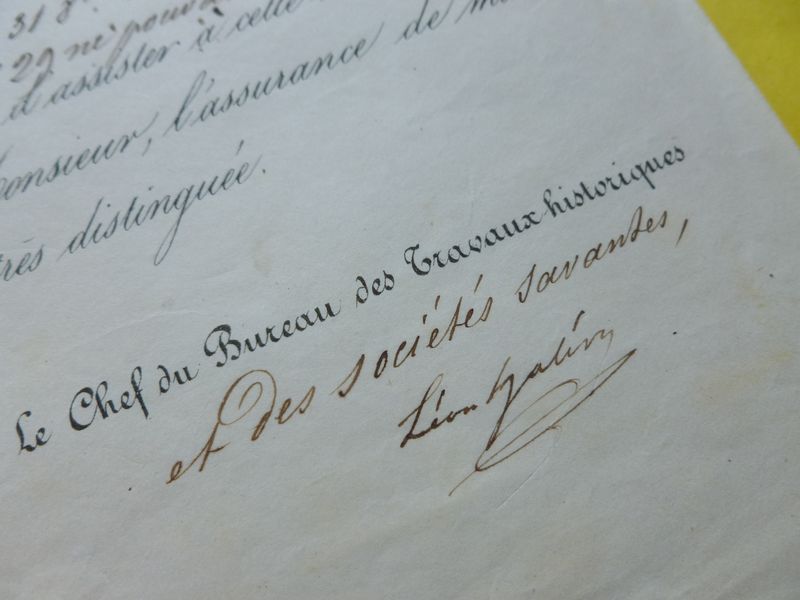 31 8
29 ne pouva
d'assister à cette
onsieur, l'assurance de m
rès distinguée.
Le Chef du Bureau des Travaux historiques
et des sociétés savantes,
Léon Halévy